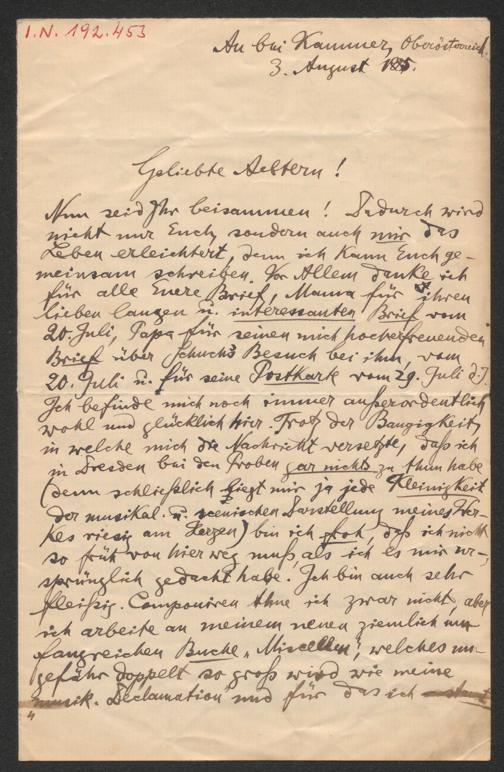 I.N. 192.453
Au bei Kammer, Oberösterreich.
3. August
Geliebte Aeltern!
Nun seid Ihr beisammen! Dadurch wird
nicht nur Euch, sondern auch mir das
Leben erleichtert, denn ich kann Euch ge-
meinsam schreiben. Vor Allem danke ich
für alle Euere Brief, Mama für ihren
lieben langen u. interessanten Brief vom
20. Juli, Papa für seinen mich hocherfreuenden
Brief über Schuch's Besuch bei ihm, vom
20. Juli u. für seine Postkarte vom 29. Juli d. J.
Ich befinde mich noch immer außerordentlich
wohl und glücklich hier. Trotz der Bangigkeit,
in welche mich die Nachricht versetzte, daß ich
in Dresden bei den Proben gar nichts zu thun habe
(denn schließlich liegt mir ja jede Kleinigkeit
der musikal. u. scenischen Darstellung meines Wer-
kes riesig am Herzen) bin ich froh, daß ich nicht
so früh von hier weg muß als ich es mir ur-
sprünglich gedacht habe. Ich bin auch sehr
fleißig. Componiren thue ich zwar nicht, aber
ich arbeite an meinem neuen ziemlich um-
fangreichen Buche „Miscellen", welches un-
gefähr doppelt so groß wird wie meine
„musik. Declamation" und für das ich